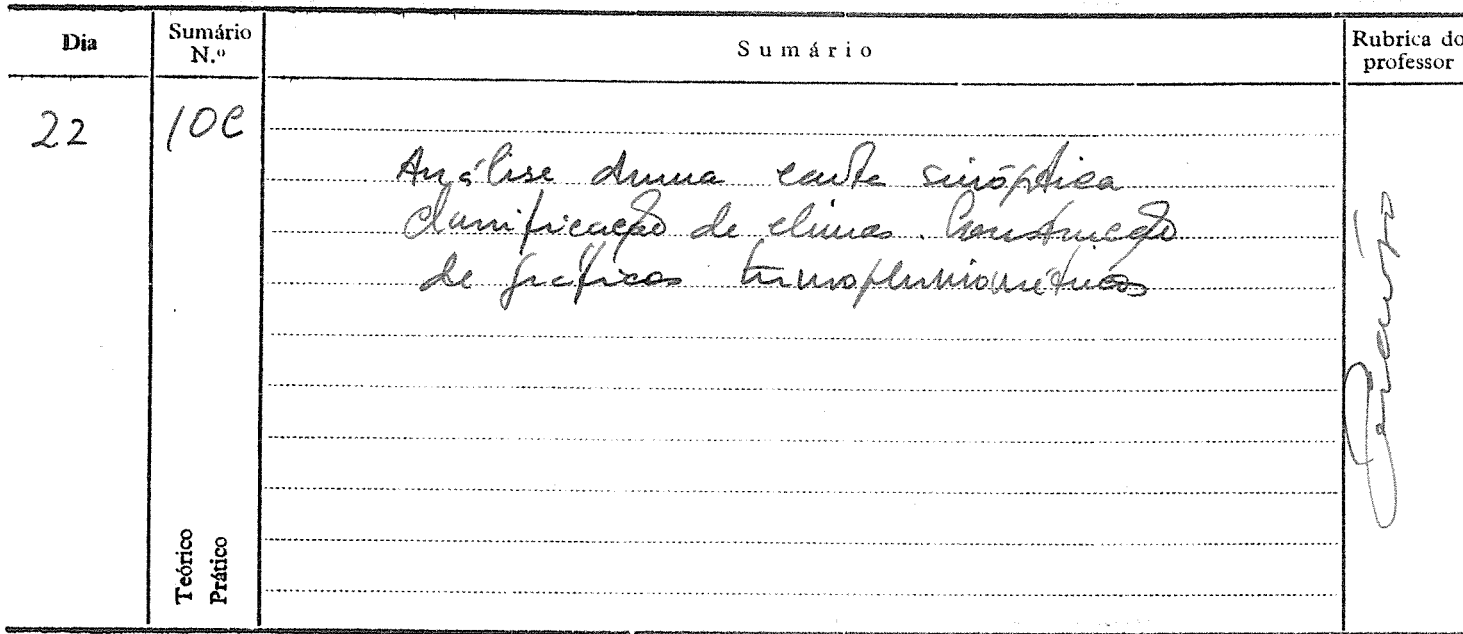 Dia
Sumário N.º
Sumário
Rubrica do professor
22
10C
Análise duma carta sinóptica
Classificação de climas. Construção
de gráficos termopluviométricos
Teórico
Prático